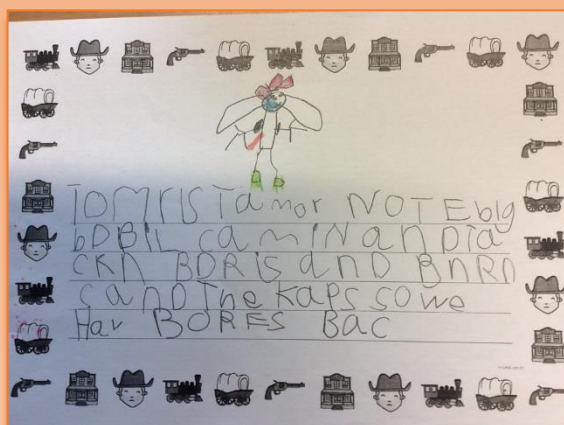 TOMrIS TamOr NOTE big
bDBIL camINanDTa
CKn BORis and BnRn
s and The Kaps so we
Hav BORES Bac